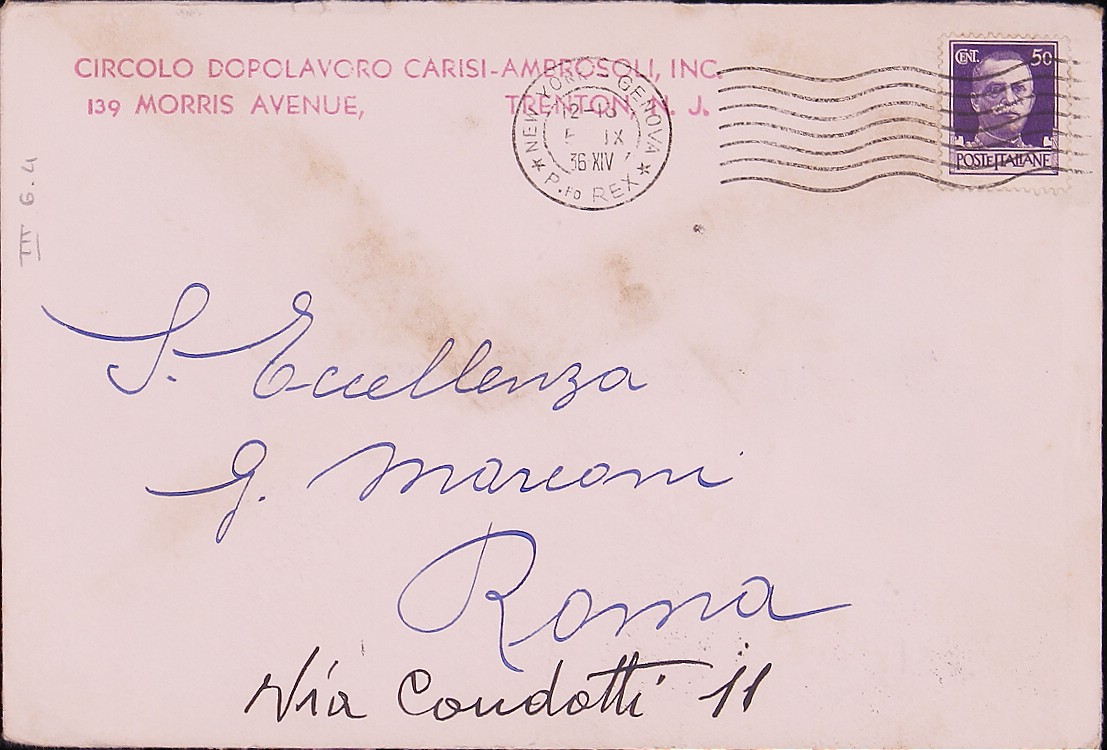 CIRCOLO DOPOLAVORO CARISI-AMBROSOLI, INC.
139 MORRIS AVENUE, TRENTON, N. J.
NEW YORK GENOVA
12-18
IX
36 XIV
P.fo REX
CENT. 50
POSTE ITALIANE
III G. 4
S. Eccellenza
G. Marconi
Roma
Via Condotti 11